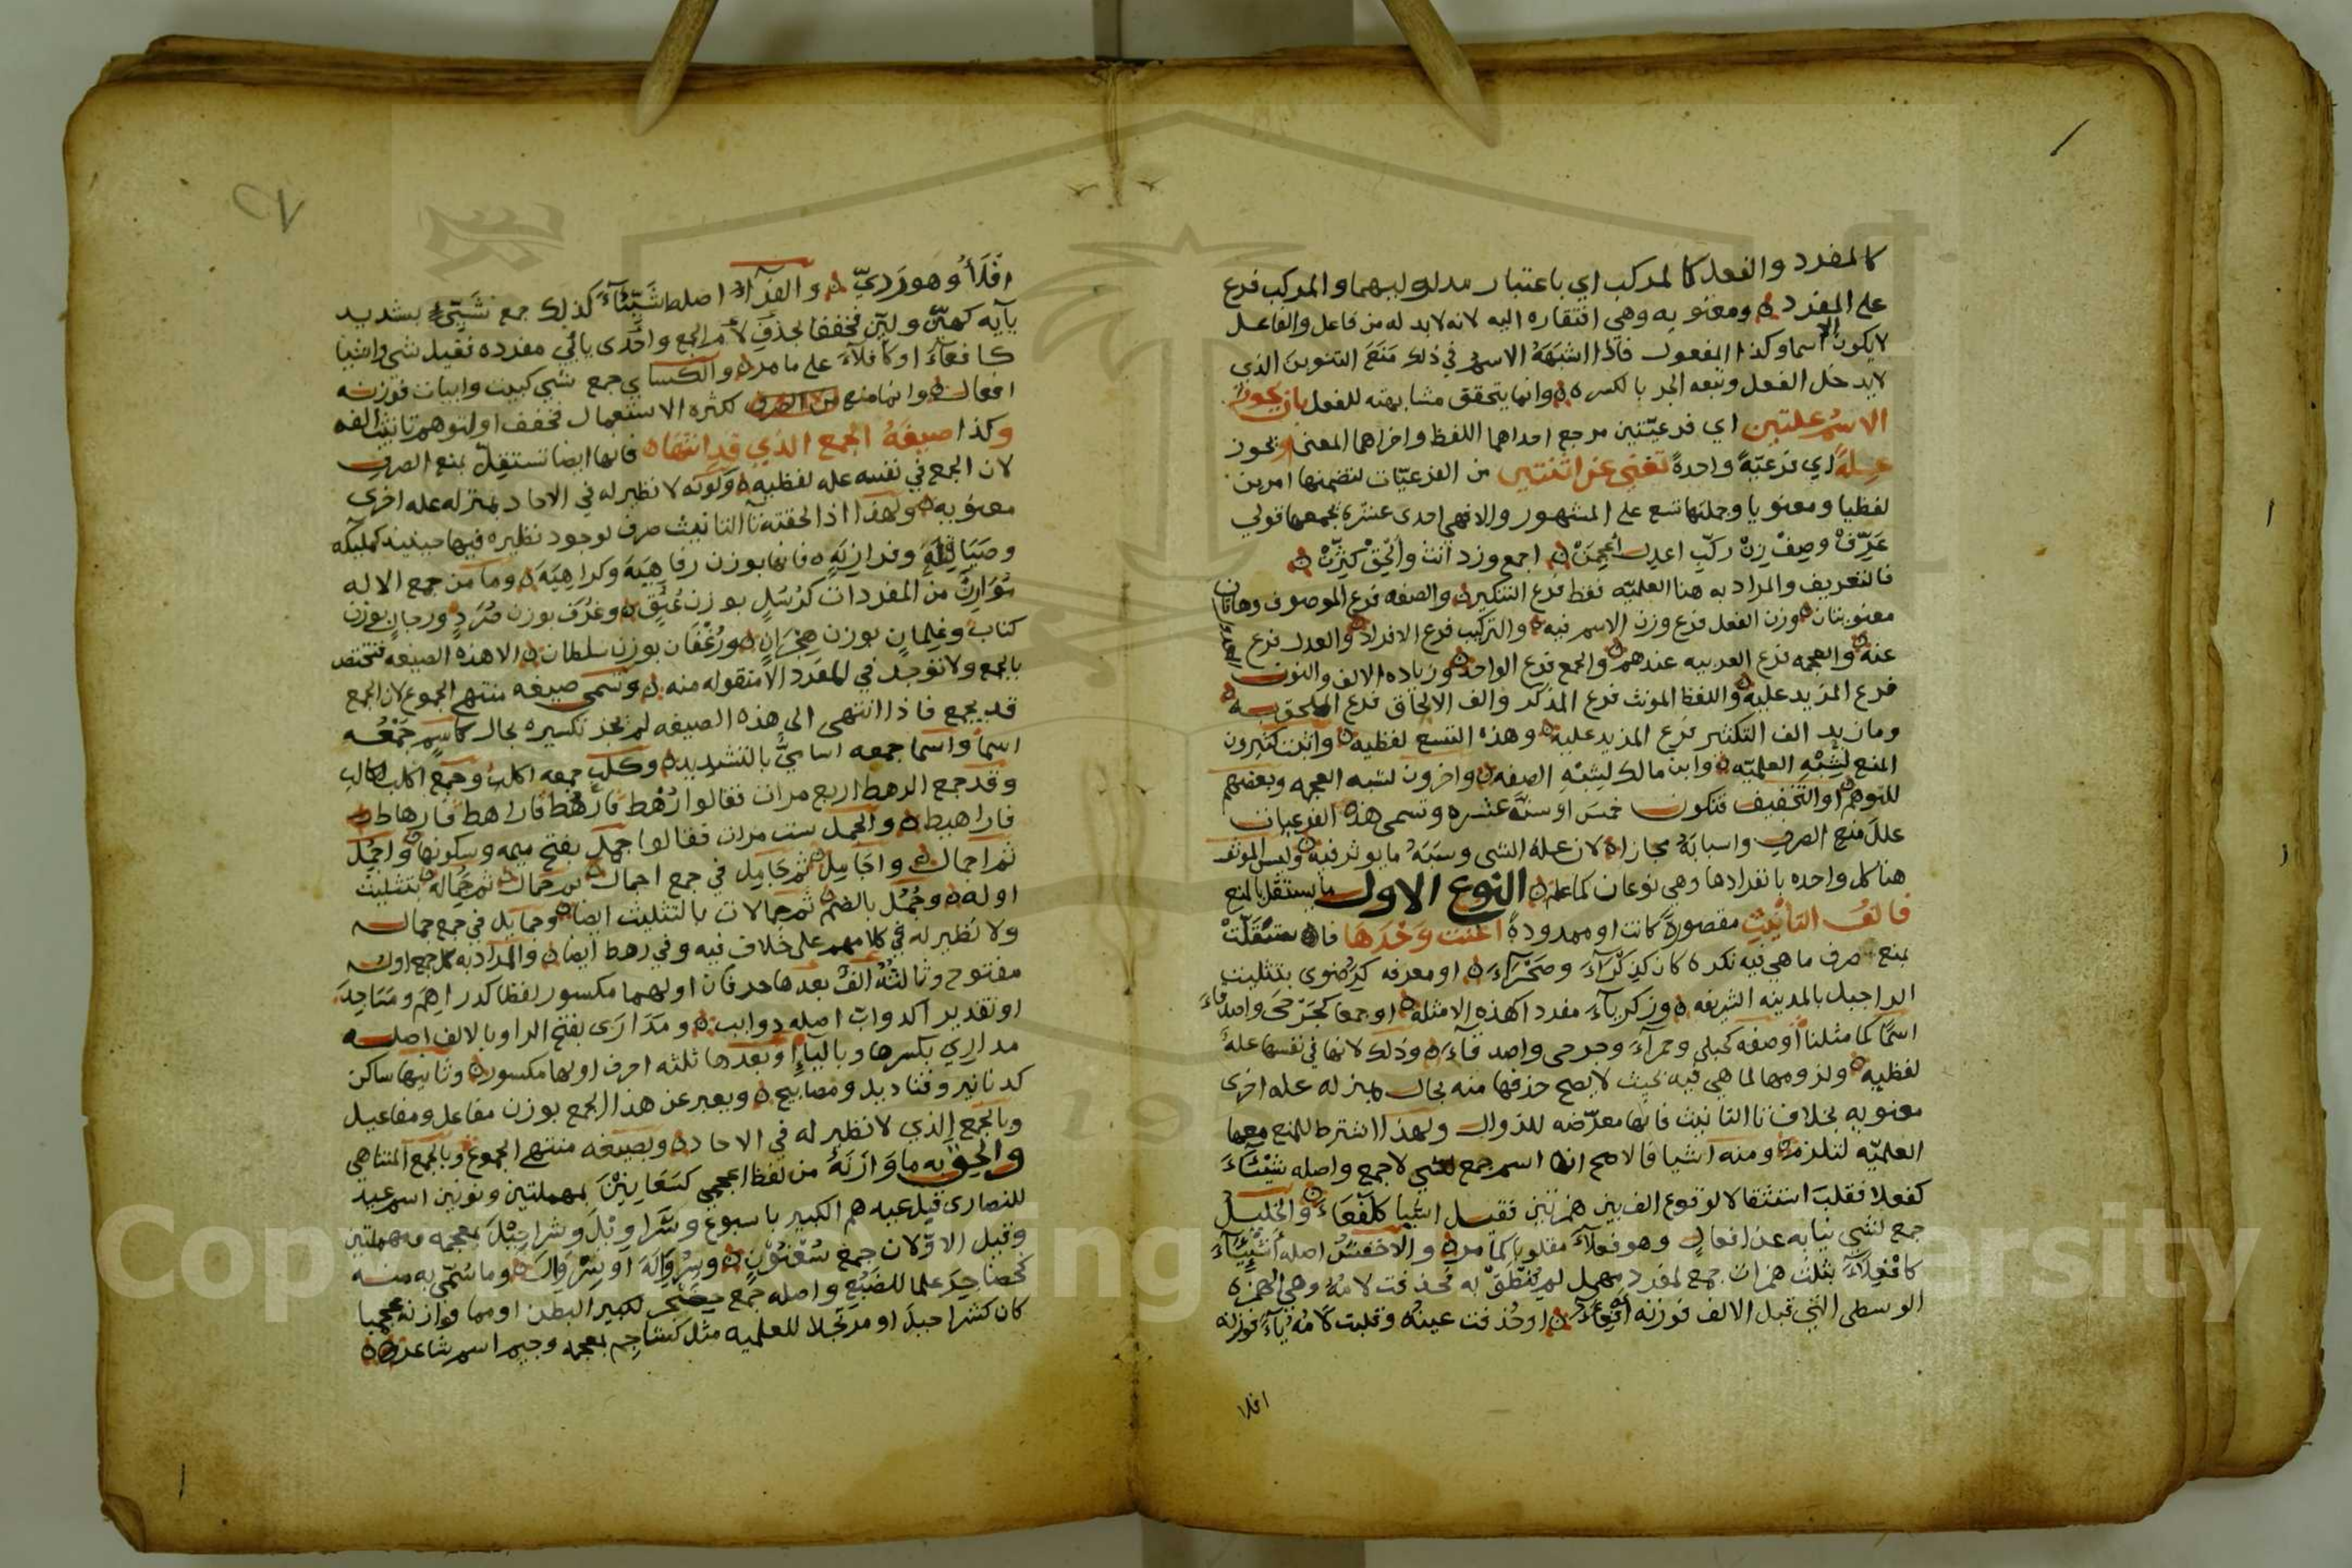 كالمفرد والفعل كالمركب اي باعتبار مدلوليهما والمركب فرع
على المفرد ومعنويه وهي افتقاره اليه لانه لابد له من فاعل والفاعل
لا يكون الا اسما وكذا المفعول فاذا اشبهه الاسم في ذلك منع التنوين الذي
لا يدخل الفعل وتبعه الجر بالكسره وانما يتحقق مشابهته للفعل بان يحوز
الاسم علتين اي فرعيتين مرجع احداهما اللفظ واخراهما المعنى او يحوز
علة اي فرعية واحدة تغني عن اثنتين من الفرعيات لتضمنها امرين
لفظيا ومعنويا وجملتها تسع على المشهور والا فهي احدى عشرة يجمعها قولي
عرف وصف زن ركب اعدل اعجمن اجمع وزد انث والحق كثرن
فالتعريف والمراد به هنا العلميه فقط فرع التنكير والصفه فرع الموصوف وهاتان
معنويتان ووزن الفعل فرع وزن الاسم فيه والتركيب فرع الافراد والعدل فرع المعدول
عنه والعجمه فرع العربيه عندهم والجمع فرع الواحد وزياده الالف والنون
فرع المزيد عليه واللفظ المونث فرع المذكر والف الالحاق فرع الملحق به
ومازيد الف التكثير فرع المزيد عليه وهذه التسع لفظيه واثبت كثيرون
المنع لشبه العلميه وابن مالك لشبه الصفه واخرون لشبه العجمه وبعضهم
للتوهم او التخفيف فتكون خمس او ستة عشره وتسمى هذه الفرعيات
علل منع الصرف واسبابه مجازا لان علة الشي وسببه ما يوثر فيه وليس الموثر
هنا كل واحده بانفرادها وهي نوعان كما علم النوع الاول ما يستقل بالمنع
فالف التأنيث مقصورة كانت او ممدودة اغنت وحدها فاستقلت
بمنع صرف ما هي فيه نكره كان كذكرى وصحراء او معرفه كرضوى بتثليث
الرا جبل بالمدينه الشريفه وزكرياء مفردا كهذه الامثله او جمعا كجرحى واصدقاء
اسما كما مثلنا او صفه كحبلى وحمراء وجرحى واصدقاء وذلك لانها في نفسها علة
لفظيه ولزومها لما هي فيه بحيث لا يصح حذفها منه بحال بمنزله عله اخرى
معنويه بخلاف تا التانيث فانها معرضه للزوال ولهذا اشترط للمنع معها
العلميه لتلزم ومنه اشيا فالاصح انها اسم جمع لشي لا جمع واصله شيئاء
كفعلا فقلب استثقالا لوقوع الف بين همزتين فقيل اشيا كلفعاء والخليل
جمع لشي نيابه عن افعال وهو فعلاء مقلوبا كما مر والاخفش اصله أشيئاء
كافعلاء بثلث همزات جمع لمفرد مهمل لم ينطق به فحذفت لامه وهي الهمزه
الوسطى التي قبل الالف فوزنه افعاء او حذفت عينه وقلبت لامه ياء فوزنه
افلا
٢٧
افلاء وهو ردي والفراء اصله شيئاء كذلك جمع شيئ بتشديد
يآيه كهين ولين مخففا بحذف لام الجمع واحدى يائي مفرده فقيل شي واشيا
كافعآء او كافلاء على ما مر والكساي جمع شي كبيت وابيات فوزنه
افعال وانما منع من الصرف لكثره الاستعمال فخفف او لتوهم تانيث الفه
وكذا صيغة الجمع الذي قد انتها فانها ايضا تستقل بمنع الصرف
لان الجمع في نفسه عله لفظيه وكونه لا نظير له في الاحاد بمنزله عله اخرى
معنويه ولهذا اذا لحقته تآ التانيث صرف لوجود نظيره فيها حينئذ كمليكه
وصياقله وفرازنه فانها بوزن رفاهية وكراهية وما من جمع الا له
موازن من المفردات كرسل بوزن عنق وغرف بوزن صرد ورجال بوزن
كتاب وغلمان بوزن هجران ورغفان بوزن سلطان الا هذه الصيغه فتختص
بالجمع ولا توجد في المفرد الا منقوله منه وتسمى صيغه منتهى الجموع لان الجمع
قد يجمع فاذا انتهى الى هذه الصيغه لم يجز تكسيره بحال كاسم جمعه
اسما واسما جمعه اسامي بالتشديد وكلب جمعه اكلب وجمع اكلب اكالب
وقد جمع الرهط اربع مرات فقالوا رهط فارهط فاراهط فارهاط
فاراهيط والجمل ست مرات فقالوا جمل بفتح ميمه وسكونها واجمل
ثم اجمال واجامل ثم جامل في جمع اجمال ثم جمال ثم جمالة بتثليث
اوله وجمل بالضم ثم جمالات بالتثليث ايضا وجمايل في جمع جمال
ولا نظير له في كلامهم على خلاف فيه وفي رهط ايضا والمراد به كل جمع اوله
مفتوح وثالثه الف بعدها حرفان اولهما مكسور لفظا كدراهم ومساجد
او تقديرا كدواب اصله دوابب ومدارى بفتح الرا وبالالف اصله
مداري بكسرها وبالياء او بعدها ثلثه احرف اولها مكسور وثانيها ساكن
كدنانير وقناديل ومصابيح ويعبر عن هذا الجمع بوزن مفاعل ومفاعيل
وبالجمع الذي لا نظير له في الاحاد وبصيغه منتهى الجموع وبالجمع المتناهي
والحق به ما وازنه من لفظ اعجمي كسعانين بمهملتين ونونين اسم عيد
للنصارى قبل عيدهم الكبير باسبوع وسراويل وشراحيل بمعجمه ومهملتين
وقيل الاولان جمع سعنون وسروالة او سروال وما سمي به منه
كحضاجر علما للضبع واصله جمع حضجر لكبير البطن او مما وازنه عجميا
كان كشراحيل او مرتجلا للعلميه مثل كشاجم بمعجمه وجيم اسم شاعر
Copyright © King Saud University